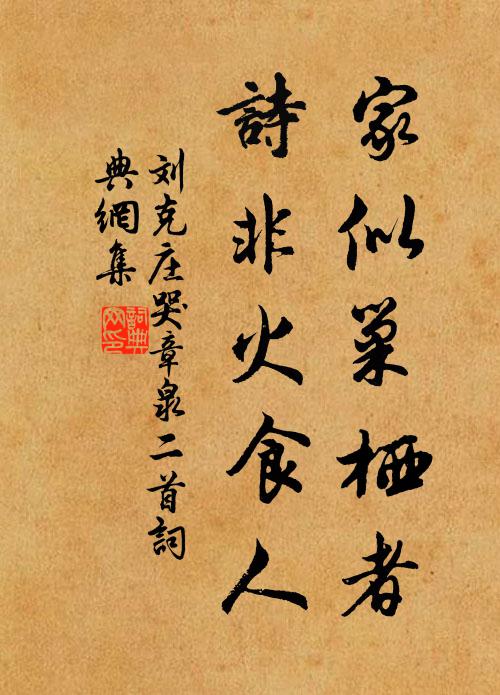 家似巢栖者
詩非火食人
刘克庄哭章泉二首詞
典網集
詞典
网印